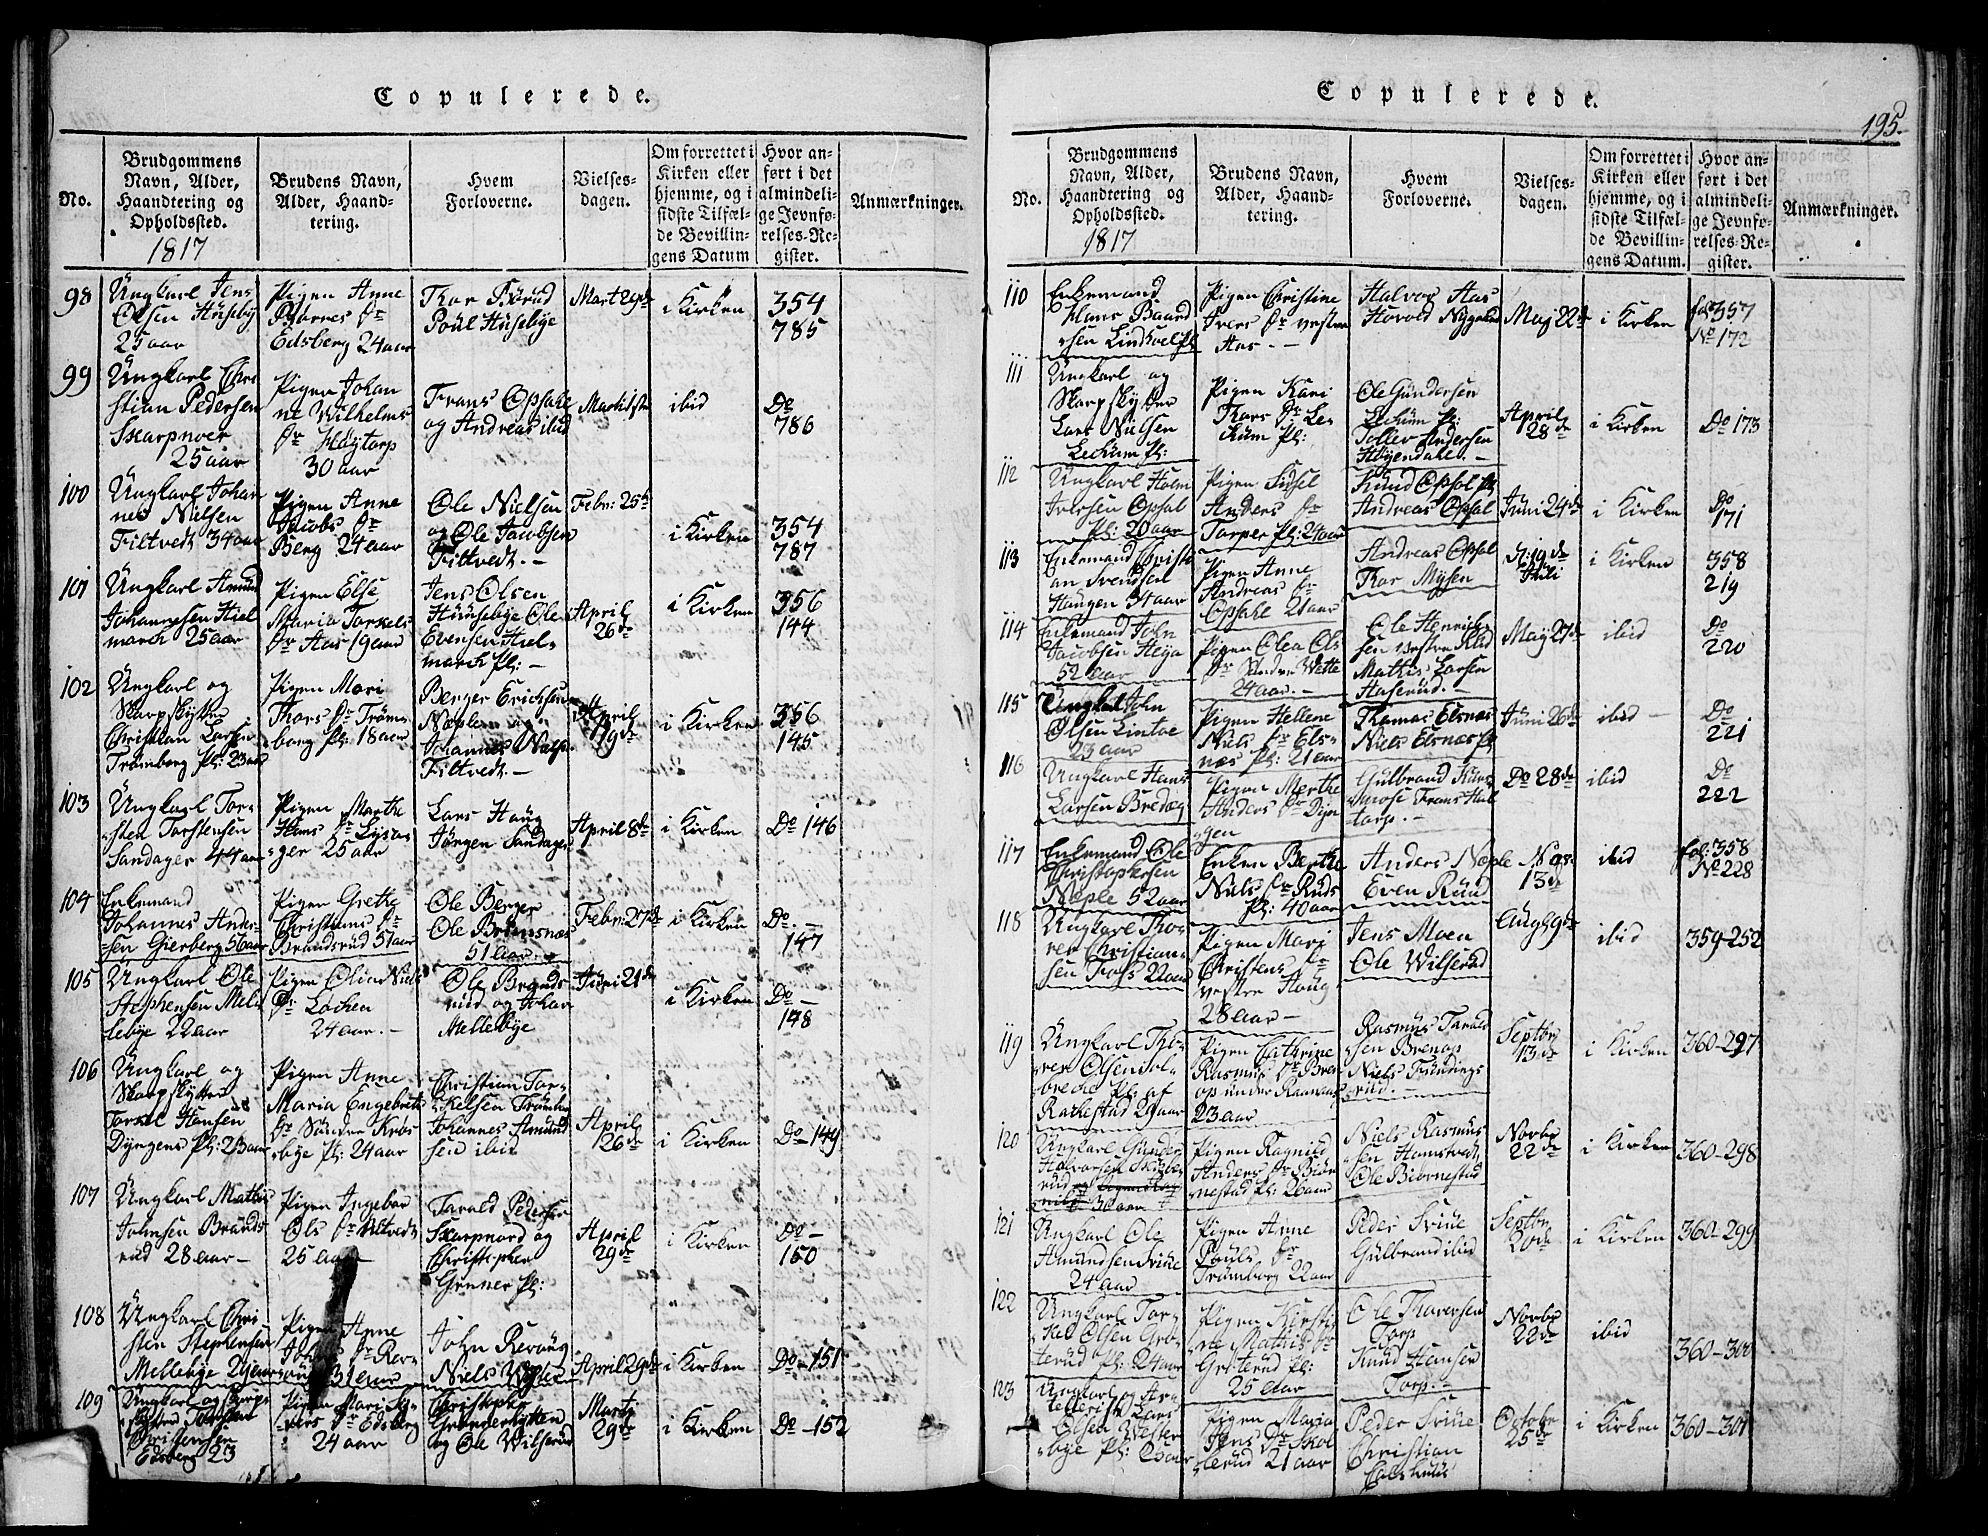 Copulerede.
No.
Brudgommens
Navn, Alder,
Haandtering og
Opholdssted.
1817
Brudens Navn,
Alder, Haand-
tering.
Hvem
Forloverne.
Vielses-
dagen.
Om forrettet i
Kirken eller
hjemme, og i
sidste Tilfæl-
de Bevillin-
gens Datum
Hvor an-
ført i det
almindeli-
ge Jevnfø-
relses-Re-
gister.
Anmærkninger.
98
Ungkarl Jens
Olsen Huseby
25 aar
Pigen Anne
Biørnes Dr
Edsberg 24 aar
Thor
Poul Husebye
Mart 29de
i Kirken
354
785
99
Ungkarl Chri
stian Pedersen
Skarpnoer
25 aar
Pigen Johan
ne Wilhelms
Dr Høytorp
30 aar
Frans Opsahl
og Andreas ibid
ibid
Do
786
100
Ungkarl Johan
nes Nielsen
Filtvedt 34 aar
Pigen Anne
Jacobs Dr
Berg 24 aar
Ole Nielsen
og Ole Jacobsen
Filtvedt. –
Febr: 25de
i Kirken
354
787
101
Ungkarl Amund
Johannesen Hiel
march 25 aar
Pigen Else
Maria Torkels
Dr Aas 19 aar
Jens Olsen
Huusebye Ole
Evensen Hiel-
march Pl: –
April
26de
i Kirken
356
144
102
Ungkarl og
Skarpskytter
Christian Larsen
Tramborg Pl: 23 aar
Pigen Mari
Thors Dr Tröm-
borg Pl: 18 aar
Berger Erichsen
Næple og
Johannes
Filtvedt. –
April
19de
i Kirken
356
145
103
Ungkarl Tor-
sten Torstensen
Sandager 44 aar
Pigen Marthe
Hans Dr
ger 25 aar
Lars Haug
Jørgen Sandager
April 8de
i Kirken
Do 146
104
Enkemand
Johannes Ander-
sen Gierberg 56 aar
Pigen Grethe
Christians Dr
Brandsrud 51 aar
Ole Berger
Ole
51 aar.
Febr: 27de
i Kirken
Do. –
147
105
Ungkarl Ole
Stephensen Mel
lebye 22 aar
Pigen Olia Niels
Dr Løchen
24 aar. –
Ole Brands
rud og Johan
Mellebye
Juni 21de
i Kirken
Do –
148
106
Ungkarl og
Skarpskytter
Torkel Hansen
Pl: 23 aar
Pigen Anne
Maria Engebrets
Dr Søndre Kros
bye Pl: 24 aar
Christian Tor-
kelsen
Johannes Amund
sen ibid
April
26de
i Kirken
Do – 149
107
Ungkarl Mathis
Johnsen Brands
rud 28 aar –
Pigen Ingebor
Ols Dr
25 aar
Tarald Pedersen
Skarpnord og
Christopher
Grøner Pl:
April
29de
i Kirken
Do –
150
108
Ungkarl Chri-
sten Stephensen
Mellebye 29 aar
Pigen Anne
31 aar
John
Niels
April 29de
i Kirken
Do – 151
109
Ungkarl og
Christensen
Edsberg 23
Pigen Mari
Dr Edsberg
24 aar
Christopher
og Ole Wilserud
Marti
29de
i Kirken
Do – 152
Copulerede.
195.
No.
Brudgommens
Navn, Alder,
Haandtering og
Opholdssted.
1817
Brudens Navn,
Alder, Haand-
tering.
Hvem
Forloverne.
Vielses-
dagen.
Om forrettet i
Kirken eller
hjemme, og i
sidste Tilfæl-
de Bevillin-
gens Datum.
Hvor an-
ført i det
almindeli-
ge Jevnfø-
relses-Re-
gister.
Anmærkninger.
110
Enkemand
Hans Baard
sen
Pigen Christine
Ivers Dr vestre
Aas. –
Halvor Aas
Maj 22de
i Kirken
fol: 357
No 172
111
Ungkarl og
Skarpskytter
Lars Nielsen
Lechum Pl:
Pigen Kari
Thors Dr Le-
chum Pl:
Ole Gundersen
Lechum Pl:
Tollev Andersen
Høyendahl. –
April
28de
i Kirken
Do 173
112
Ungkarl Holm
Iversen Opsal
Pl: 20 aar
Pigen Sidsel
Anders Dr
Torper Pl: 24 aar
Knud Opsal Pl
Andreas Opsal
Juni 24de
i Kirken
Do
171
113
Enkemand Christi
an Svendsen
Haugen 34 aar
Pigen Anne
Andreas Dr
Opsahl 21 aar
Andreas Opsal
Thor Mysen
19de
Juli
i Kirken
358
219
114
Enkemand John
Jacobsen Heya
52 aar
Pigen Olea Ols
Dr Vestre
24 aar. –
Ole Henrich-
sen vestre
Mathis Larsen
Haserud. –
May 27de
ibid
Do
220
115
Ungkarl John
Olsen Lintoe
23 aar
Pigen Hellene
Niels Dr Els-
næs Pl: 21 aar
Thomas Elsnæs
Niels Elsnæs Pl
Juni 26de
ibid –
Do
221
116
Ungkarl Hans
Larsen
Pigen Merthe
Anders Dr Dyn
gen
Gulbrand
Frans Høi
torp. –
Do 28de
ibid
Do
222
117
Enkemand Ole
Christophersen
Næple 52 aar
Enken Berthe
Niels Dr Ruds
Pl: 40 aar
Anders Næple
Even Ruud
Nov:
13de
ibid
fol: 358
No 228
118
Ungkarl Tho-
rer Christian-
sen Foss 22 aar
Pigen Mari
Christens Dr
vestre Haug
28 aar –
Jens Moen
Ole Wilserud
Aug 29de
ibid
359–252
119
Ungkarl Tho-
rer Olsen Dol-
Pl: af
Rakkestad 29 aar
Pigen Cathrine
Rasmus Dr Bren
op under Raanaas
23 aar
Rasmus Tarald
sen Brenop
Niels
rud.
Septbr
13de
i Kirken
360–297
120
Ungkarl Gunder
Halvorsen
rud
30 aar
Pigen Ragnild
Anders Dr Biør
nestad Pl: 26 aar
Niels Rasmus
sen Hamstvedt
Ole Biørnestad
Novbr
22de
i Kirken
360–298
121
Ungkarl Ole
Amundsen
24 aar
Pigen Anne
Pouls Dr
Trømborg 22 aar
Peder
Gulbrand ibid
Septbr
20de
i Kirken
360–299
122
Ungkarl Tor-
kel Olsen Gro-
terud Pl: 24 aar
Pigen Kirsti-
ne Mathis Dr
Groterud Pl:
25 aar
Ole Thoresen
Torp
Knud Hansen
Torp. –
Novbr
22de
ibid
360–300
123
Ungkarl og Ar-
tellerist Lars
Olsen Vester
bye Pl:
Pigen Maria
Jens Dr Skol
lerud 21 aar
Peder
Christian
October
25de
i Kirken
360–301